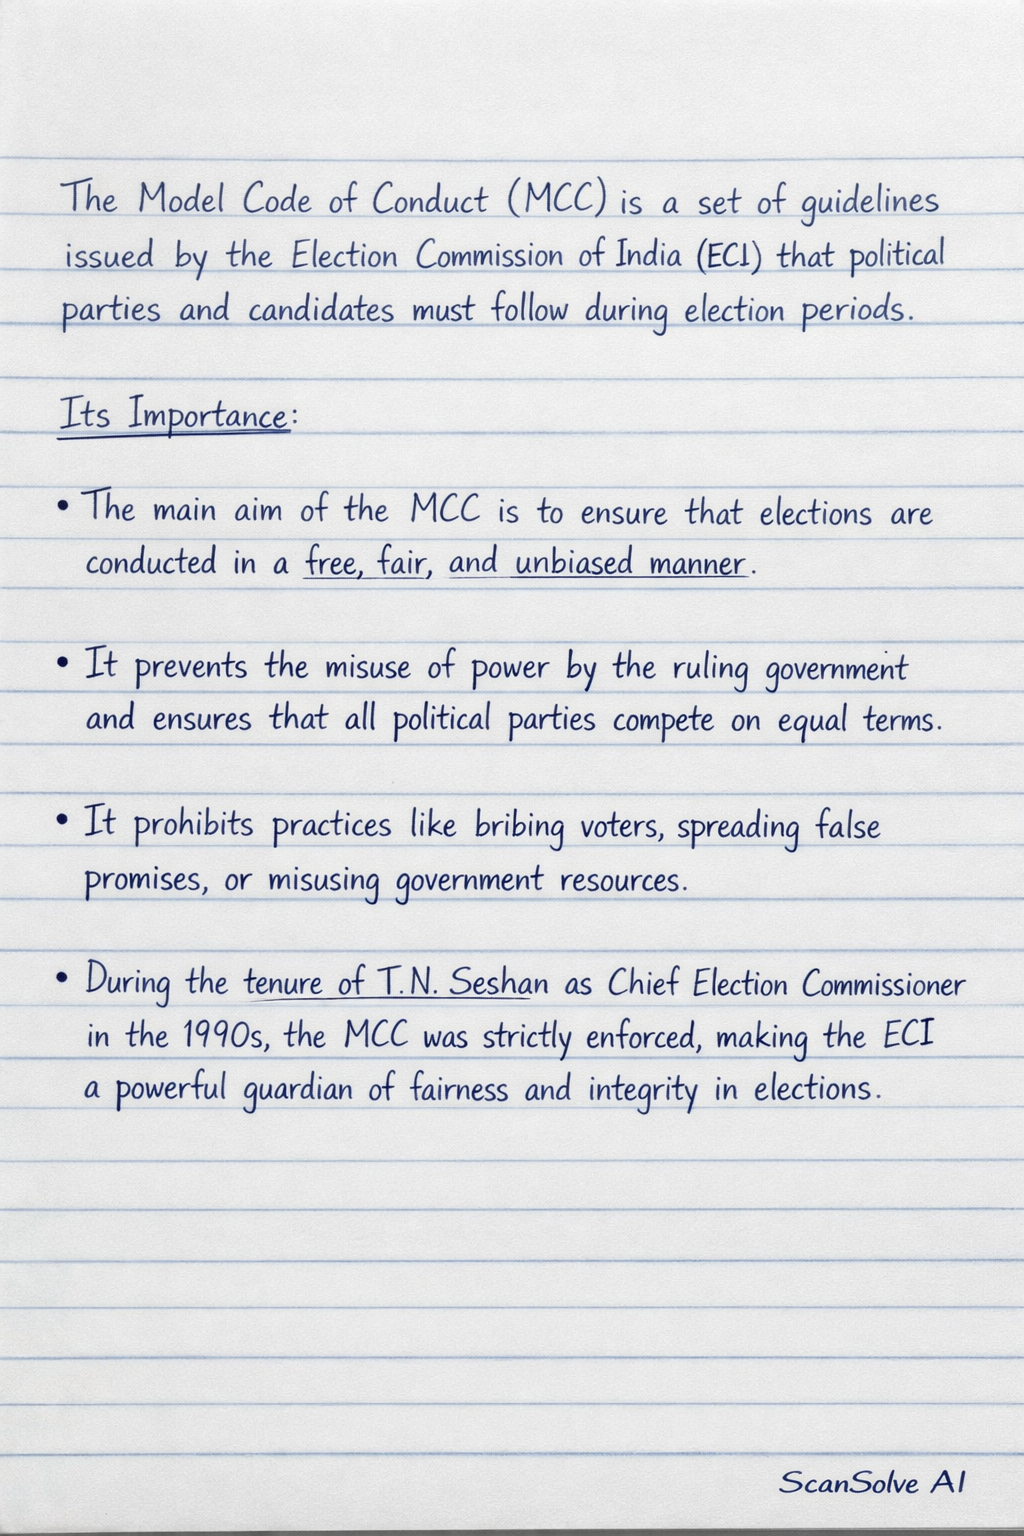 The Model Code of Conduct (MCC) is a set of guidelines
issued by the Election Commission of India (ECI) that political
parties and candidates must follow during election periods.
Its Importance:
• The main aim of the MCC is to ensure that elections are
conducted in a free, fair, and unbiased manner.
• It prevents the misuse of power by the ruling government
and ensures that all political parties compete on equal terms.
• It prohibits practices like bribing voters, spreading false
promises, or misusing government resources.
• During the tenure of T.N. Seshan as Chief Election Commissioner
in the 1990s, the MCC was strictly enforced, making the ECI
a powerful guardian of fairness and integrity in elections.
ScanSolve AI